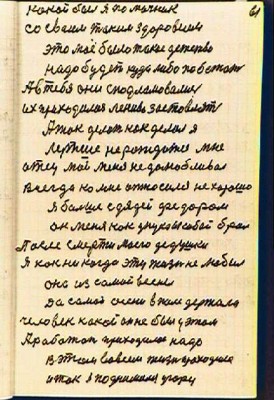 61
какой был я помочник
со своим таким здоровием
это моё было такое детство
надо будет куда либо побежать
А тебя они
их приходилося лениво заставлять
А так делот как делал я
Лертше не рождатся мне
отец мой меня не долюбливал
Всегда ко мне относился не хорошо
Я больше с дядей Федором
он меня как внука с собой брал
После смерти моего дедушки
Я как никогда эту жизнь не любил
она из самой весны
Да самой осени в поле держала
человек какой он не был у этом
А работат приходилося надо
в этом во всем жизнь проходила
и так я поднимался у гору